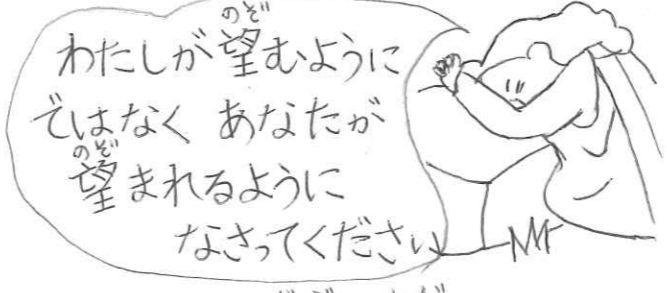 わたしが望むように
ではなく あなたが
望まれるように
なさってください